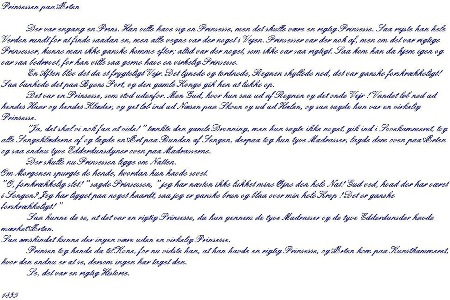 Prinsessen paa Ærten
Der var engang en Prins. Han ville have sig en Prinsesse, men det skulde være en rigtig Prinsesse. Saa reiste han hele
Verden rundt for at finde saadan en, men alle vegne var der noget i Veien. Prinsesser var der nok af, men om det var rigtige
Prinsesser, kunne man ikke ganske komme efter; altid var der noget, som ikke var saa rigtigt. Saa kom han da hjem igen og
var saa bedrøvet, for han ville saa gerne have en virkelig Prinsesse.
En Aften blev det da et frygteligt Vejr. Det lynede og tordnede, Regnen skyllede ned, det var ganske forskrækkeligt!
Saa bankede det paa Byens Port, og den gamle Konge gik hen at lukke op.
Det var en Prinsesse, som stod udenfor. Men Gud, hvor hun saa ud af Regnen og det onde Vejr! Vandet løb ned ad
hendes Haar og hendes Klæder, og det løb ind ad Næsen paa Skoen og ud ad Hælen, og saa sagde hun var en virkelig
Prinsesse.
"Ja, det skal vi nok faa at vide!" tænkte den gamle Dronning, men hun sagde ikke noget, gik ind i Sovekammeret, tog
alle Sengeklæderne af og lagde en Ært paa Bunden af Sengen, derpaa tog hun tyve Madrasser, lagde dem oven paa Ærten
og saa endnu tyve Edderdunsdyner oven paa Madrasserne.
Der skulle nu Prinsessen ligge om Natten.
Om Morgenen spurgte de hende, hvordan hun havde sovet.
"O, forskrækkelig slet!" sagde Prinsessen, "jeg har næsten ikke lukket mine Øjne den hele Nat! Gud ved, hvad der har været
i Sengen? Jeg har ligget paa noget haardt, saa jeg er ganske brun og blaa over min hele Krop! Det er ganske
forskrækkeligt!"
Saa kunne de se, at det var en rigtig Prinsesse, da hun gennem de tyve Madrasser og de tyve Edderdunsdyner havde
mærket Ærten.
Saa ømskindet kunne der ingen være uden en virkelig Prinsesse.
Prinsen tog hende da til Kone, for nu vidste han, at han havde en rigtig Prinsesse, og Ærten kom paa Kunstkammeret,
hvor den endnu er at se, dersom ingen har taget den.
Se, det var en rigtig Historie.
1835